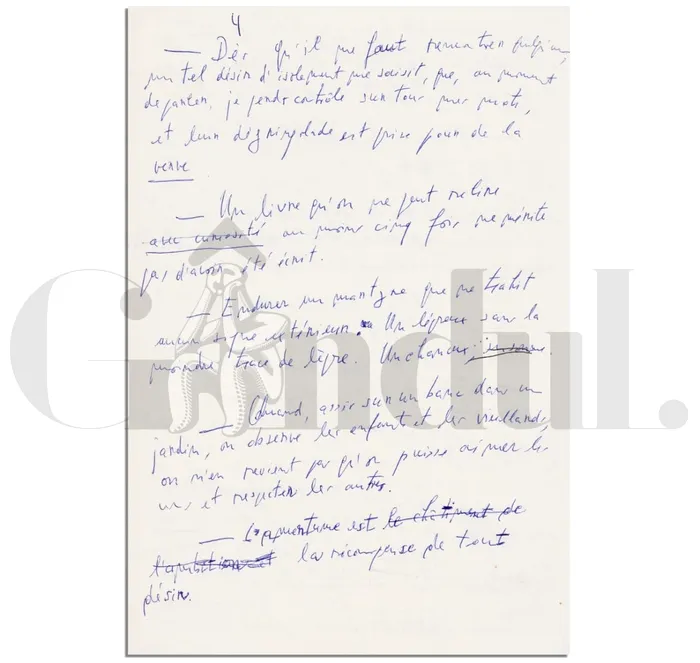 4
— Dès qu'il me faut rencontrer quelqu'un,
un tel désir d'isolement me saisit, que, au moment
de parler, je perds contrôle sur tous mes mots,
et leur dégringolade est prise pour de la
verve
— Un livre qu'on ne peut relire
avec curiosité au moins cinq fois ne mérite
pas d'avoir été écrit.
— Endurer un martyre que ne trahit
aucun signe extérieur. Un lépreux sans la
moindre trace de lèpre. Un chanceux,
— Quand, assis sur un banc dans un
jardin, on observe les enfants et les vieillards,
on n'en revient pas qu'on puisse aimer les
uns et respecter les autres.
— L'amertume est le châtiment de
l'ambition et la récompense de tout
désir.
Gândul.